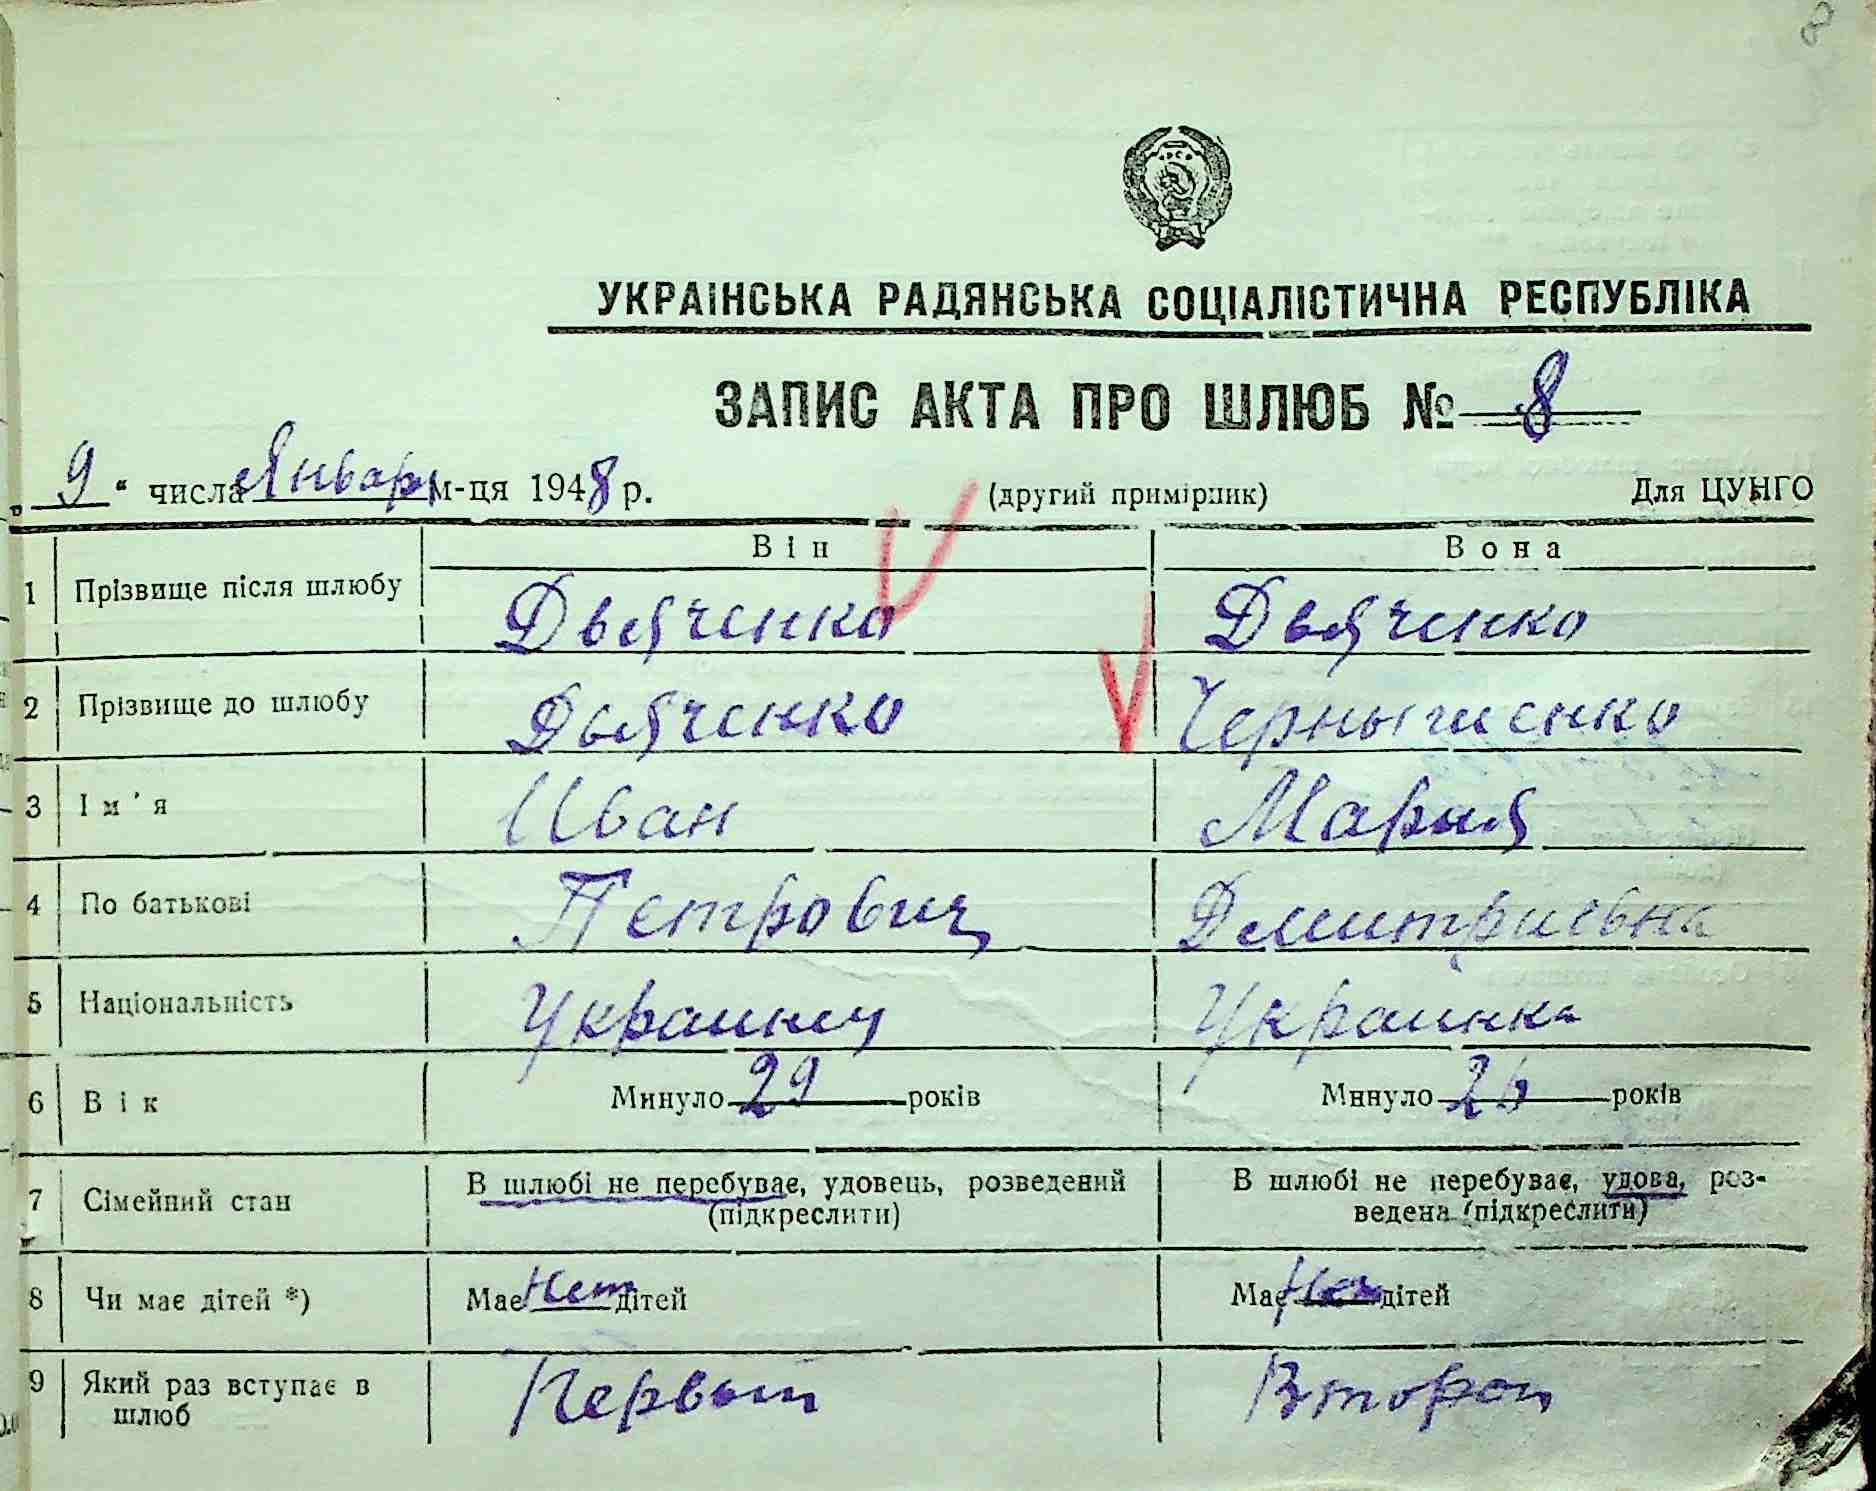 8
УКРАІНСЬКА РАДЯНСЬКА СОЦІАЛІСТИЧНА РЕСПУБЛІКА
ЗАПИС АКТА ПРО ШЛЮБ № 8
„ 9 “ числа Январ м-ця 1948 р. (другий примірник) Для ЦУНГО
Він Вона
1 Прізвище після шлюбу Дьяченко Дьяченко
2 Прізвище до шлюбу Дьяченко Чернышенко
3 Ім'я Иван Мария
4 По батькові Петрович Дмитриевна
5 Національність Украинец Украинка
6 Вік Минуло 29 років Минуло 26 років
7 Сімейний стан В шлюбі не перебуває, удовець, розведений В шлюбі не перебуває, удова, роз-
(підкреслити) ведена (підкреслити)
8 Чи має дітей *) Має Нет дітей Має Нет дітей
9 Який раз вступає в Первый Второй
шлюб